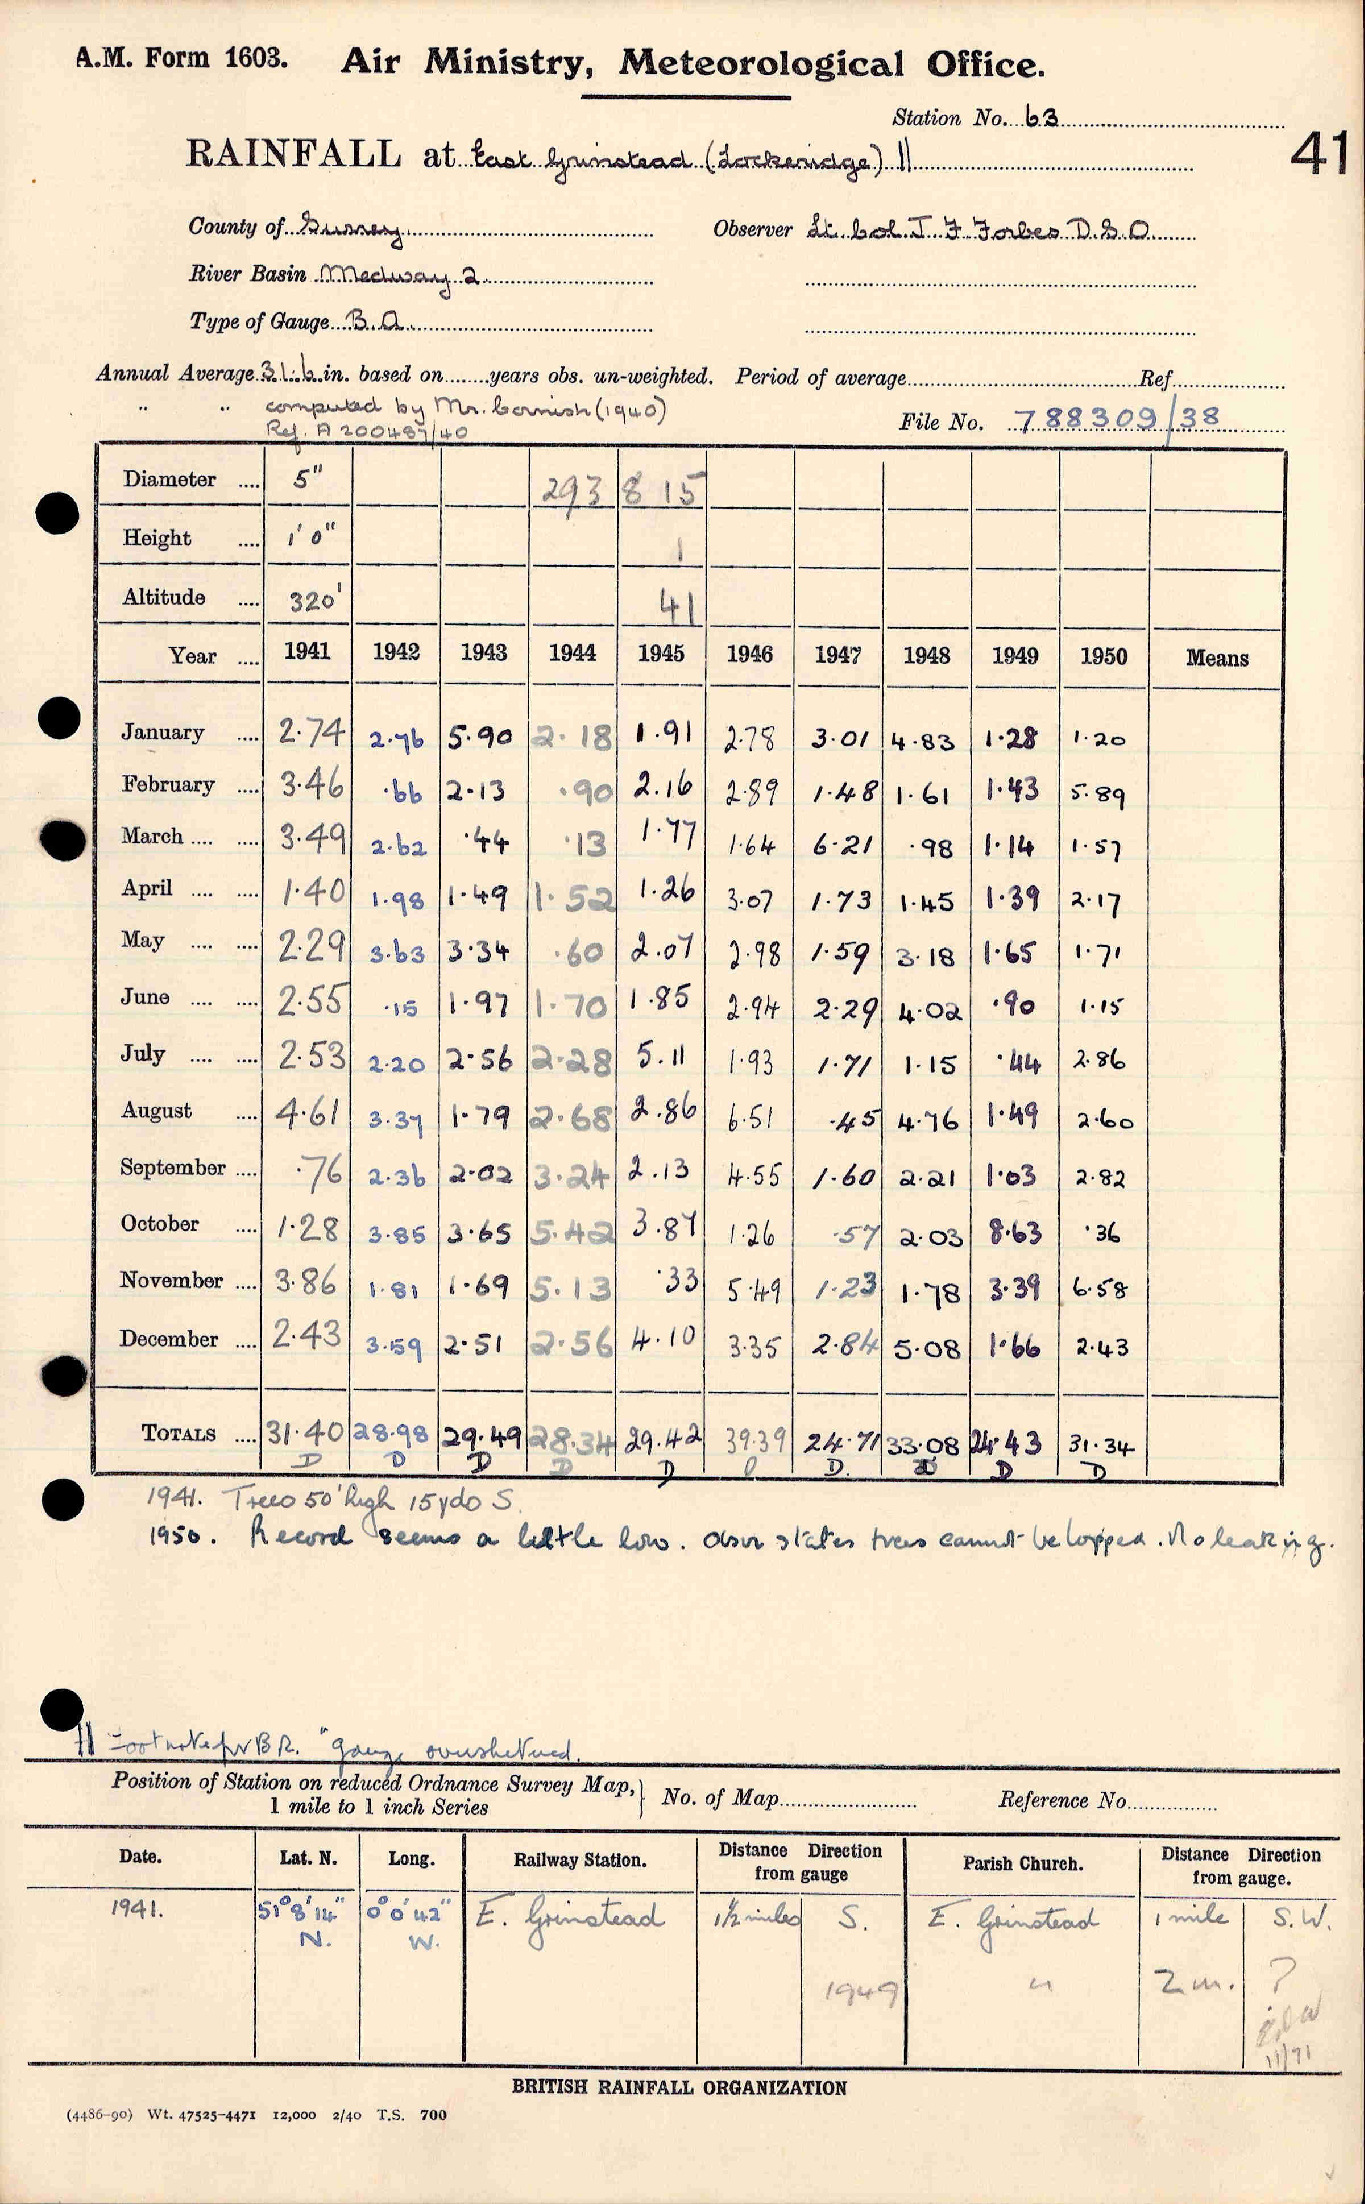 A.M. Form 1603. Air Ministry, Meteorological Office.
Station No. 63
41
RAINFALL at East Grinstead (Lockeridge) ||
County of Surrey Observer Lt. Col. J. F. Forbes D.S.O.
River Basin Medway 2
Type of Gauge B.A.
Annual Average 31.6 in. based on ........ years obs. un-weighted. Period of average ........ Ref ........
" " computed by Mr. Cornish (1940)
Ref. A 200487/40 File No. 788309/38
Diameter .... 5" 293 8 15
Height .... 1' 0" 1
Altitude .... 320' 41
Year .... 1941 1942 1943 1944 1945 1946 1947 1948 1949 1950 Means
January .... 2.74 2.76 5.90 2.18 1.91 2.78 3.01 4.83 1.28 1.20
February .... 3.46 .66 2.13 .90 2.16 2.89 1.48 1.61 1.43 5.89
March .... .... 3.49 2.62 .44 .13 1.77 1.64 6.21 .98 1.14 1.57
April .... .... 1.40 1.98 1.49 1.52 1.26 3.07 1.73 1.45 1.39 2.17
May .... .... 2.29 3.63 3.34 .60 2.07 2.98 1.59 3.18 1.65 1.71
June .... .... 2.55 .15 1.97 1.70 1.85 2.94 2.29 4.02 .90 1.15
July .... .... 2.53 2.20 2.56 2.28 5.11 1.93 1.71 1.15 .44 2.86
August .... 4.61 3.37 1.79 2.68 2.86 6.51 .45 4.76 1.49 2.60
September .... .76 2.36 2.02 3.24 2.13 4.55 1.60 2.21 1.03 2.82
October .... 1.28 3.85 3.65 5.42 3.87 1.26 .57 2.03 8.63 .36
November .... 3.86 1.81 1.69 5.13 .33 5.49 1.23 1.78 3.39 6.58
December .... 2.43 3.59 2.51 2.56 4.10 3.35 2.84 5.08 1.66 2.43
TOTALS .... 31.40 28.98 29.49 28.34 29.42 39.39 24.71 33.08 24.43 31.34
D D D D D D D. D D D
1941. Trees 50' high 15 yds S.
1950. Record seems a little low. Obsr states trees cannot be lopped. No leaking.
|| Footnote for B.R. "gauge oversheltered.
Position of Station on reduced Ordnance Survey Map, 1 mile to 1 inch Series } No. of Map ........ Reference No. ........
Date. Lat. N. Long. Railway Station. Distance Direction from gauge Parish Church. Distance Direction from gauge.
1941. 51° 8' 14" N. 0° 0' 42" W. E. Grinstead 1½ miles S. E. Grinstead 1 mile S.W.
1949 " 2 m. ?
11/71
BRITISH RAINFALL ORGANIZATION
(4486-90) Wt. 47525-4471 12,000 2/40 T.S. 700